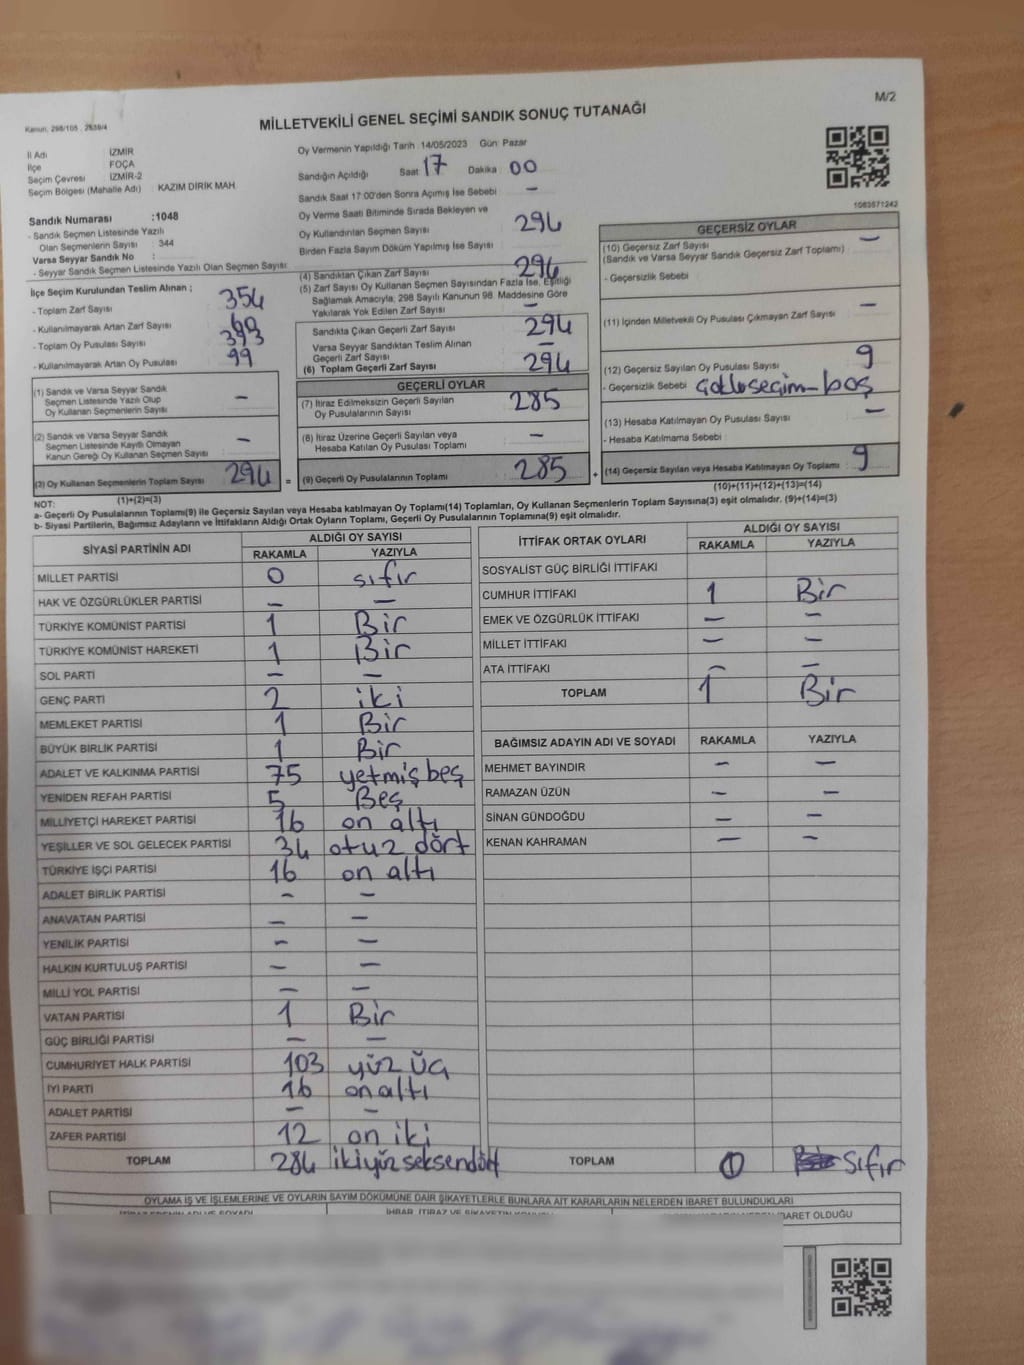 M/2
Kanun, 298/105 , 2839/4
MİLLETVEKİLİ GENEL SEÇİMİ SANDIK SONUÇ TUTANAĞI
İl Adı : İZMİR
İlçe : FOÇA
Seçim Çevresi : İZMİR-2
Seçim Bölgesi (Mahalle Adı) : KAZIM DİRİK MAH.
Oy Vermenin Yapıldığı Tarih : 14/05/2023 Gün: Pazar
Sandığın Açıldığı Saat 17 Dakika 00
Sandık Saat 17:00'den Sonra Açımış İse Sebebi –
Oy Verme Saati Bitiminde Sırada Bekleyen ve
Oy Kullandırılan Seçmen Sayısı 294
Birden Fazla Sayım Döküm Yapılmış İse Sayısı
1083571242
Sandık Numarası :1048
- Sandık Seçmen Listesinde Yazılı
Olan Seçmenlerin Sayısı : 344
Varsa Seyyar Sandık No :
- Seyyar Sandık Seçmen Listesinde Yazılı Olan Seçmen Sayısı:
İlçe Seçim Kurulundan Teslim Alınan ;
- Toplam Zarf Sayısı 354
- Kullanılmayarak Artan Zarf Sayısı 60
- Toplam Oy Pusulası Sayısı 393
- Kullanılmayarak Artan Oy Pusulası 99
(1) Sandık ve Varsa Seyyar Sandık
Seçmen Listesinde Yazılı Olup
Oy Kullanan Seçmenlerin Sayısı –
(2) Sandık ve Varsa Seyyar Sandık
Seçmen Listesinde Kayıtlı Olmayan
Kanun Gereği Oy Kullanan Seçmen Sayısı –
(3) Oy Kullanan Seçmenlerin Toplam Sayısı 294
(1)+(2)=(3)
(4) Sandıktan Çıkan Zarf Sayısı 294
(5) Zarf Sayısı Oy Kullanan Seçmen Sayısından Fazla İse, Eşitliği
Sağlamak Amacıyla, 298 Sayılı Kanunun 98. Maddesine Göre
Yakılarak Yok Edilen Zarf Sayısı –
Sandıkta Çıkan Geçerli Zarf Sayısı 294
Varsa Seyyar Sandıktan Teslim Alınan
Geçerli Zarf Sayısı –
(6) Toplam Geçerli Zarf Sayısı 294
GEÇERLİ OYLAR
(7) İtiraz Edilmeksizin Geçerli Sayılan
Oy Pusulalarının Sayısı 285
(8) İtiraz Üzerine Geçerli Sayılan veya
Hesaba Katılan Oy Pusulası Toplamı –
= (9) Geçerli Oy Pusulalarının Toplamı 285
GEÇERSİZ OYLAR
(10) Geçersiz Zarf Sayısı –
(Sandık ve Varsa Seyyar Sandık Geçersiz Zarf Toplamı)
- Geçersizlik Sebebi :
(11) İçinden Milletvekili Oy Pusulası Çıkmayan Zarf Sayısı –
(12) Geçersiz Sayılan Oy Pusulası Sayısı 9
- Geçersizlik Sebebi boş
(13) Hesaba Katılmayan Oy Pusulası Sayısı –
- Hesaba Katılmama Sebebi :
+ (14) Geçersiz Sayılan veya Hesaba Katılmayan Oy Toplamı 9
(10)+(11)+(12)+(13)=(14)
NOT:
a- Geçerli Oy Pusulalarının Toplamı(9) ile Geçersiz Sayılan veya Hesaba katılmayan Oy Toplamı(14) Toplamları, Oy Kullanan Seçmenlerin Toplam Sayısına(3) eşit olmalıdır. (9)+(14)=(3)
b- Siyasi Partilerin, Bağımsız Adayların ve İttifakların Aldığı Ortak Oyların Toplamı, Geçerli Oy Pusulalarının Toplamına(9) eşit olmalıdır.
SİYASİ PARTİNİN ADI ALDIĞI OY SAYISI
RAKAMLA YAZIYLA
MİLLET PARTİSİ 0 sıfır
HAK VE ÖZGÜRLÜKLER PARTİSİ – –
TÜRKİYE KOMÜNİST PARTİSİ 1 Bir
TÜRKİYE KOMÜNİST HAREKETİ 1 Bir
SOL PARTİ – –
GENÇ PARTİ 2 iki
MEMLEKET PARTİSİ 1 Bir
BÜYÜK BİRLİK PARTİSİ 1 Bir
ADALET VE KALKINMA PARTİSİ 75 yetmiş beş
YENİDEN REFAH PARTİSİ 5 Beş
MİLLİYETÇİ HAREKET PARTİSİ 16 on altı
YEŞİLLER VE SOL GELECEK PARTİSİ 34 otuz dört
TÜRKİYE İŞÇİ PARTİSİ 16 on altı
ADALET BİRLİK PARTİSİ – –
ANAVATAN PARTİSİ – –
YENİLİK PARTİSİ – –
HALKIN KURTULUŞ PARTİSİ – –
MİLLİ YOL PARTİSİ – –
VATAN PARTİSİ 1 Bir
GÜÇ BİRLİĞİ PARTİSİ – –
CUMHURİYET HALK PARTİSİ 103 yüz üç
İYİ PARTİ 16 on altı
ADALET PARTİSİ – –
ZAFER PARTİSİ 12 on iki
TOPLAM 284 ikiyüz seksendört
İTTİFAK ORTAK OYLARI ALDIĞI OY SAYISI
RAKAMLA YAZIYLA
SOSYALİST GÜÇ BİRLİĞİ İTTİFAKI
CUMHUR İTTİFAKI 1 Bir
EMEK VE ÖZGÜRLÜK İTTİFAKI – –
MİLLET İTTİFAKI – –
ATA İTTİFAKI – –
TOPLAM 1 Bir
BAĞIMSIZ ADAYIN ADI VE SOYADI RAKAMLA YAZIYLA
MEHMET BAYINDIR – –
RAMAZAN ÜZÜN – –
SİNAN GÜNDOĞDU – –
KENAN KAHRAMAN – –
TOPLAM 0 Sıfır
OYLAMA İŞ VE İŞLEMLERİNE VE OYLARIN SAYIM DÖKÜMÜNE DAİR ŞİKAYETLERLE BUNLARA AİT KARARLARIN NELERDEN İBARET BULUNDUKLARI
İHBAR, İTİRAZ VE ŞİKAYETİN İBARET OLDUĞU